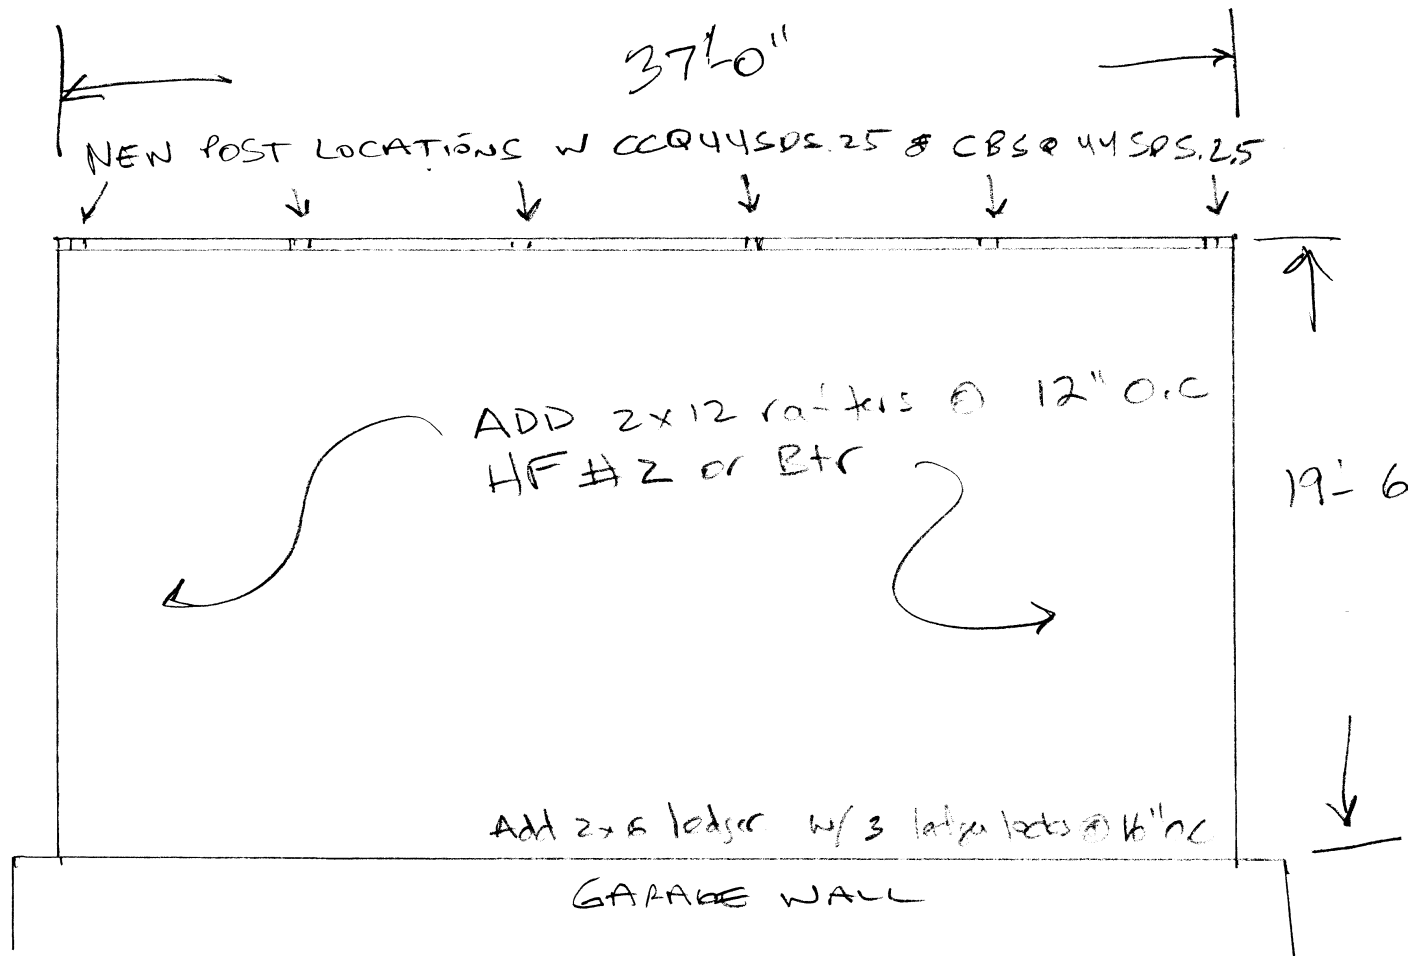 37'-0"
NEW POST LOCATIONS W CCQ44SDS.25 & CBSQ44SDS.2.5
ADD 2x12 rafters @ 12" O.C
HF #2 or Btr
19'-6
Add 2x6 ledger w/ 3 ledger locks @ 16" oc
GARAGE WALL